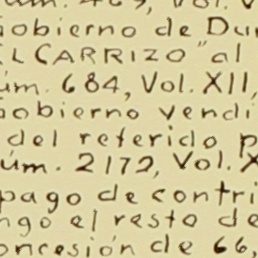 Vol. V
Gobierno de Du
EL CARRIZO" al
úm. 684, Vol. XII,
Gobierno vendi
del referido p
úm. 2172, Vol. X
pago de contri
ngo el resto de
oncesión de 66,